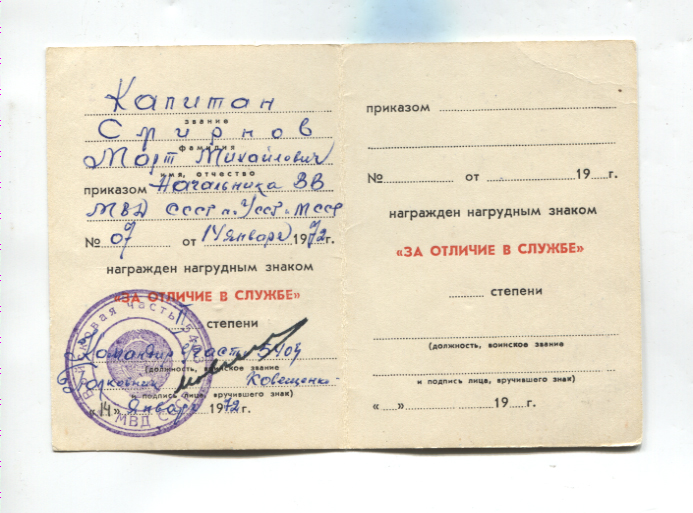 Капитан
звание
Смирнов
фамилия
Март Михайлович
имя, отчество
приказом Начальника ВВ
МВД СССР по УССР и МССР
№ 07 от 14 января 1972 г.
награжден нагрудным знаком
«ЗА ОТЛИЧИЕ В СЛУЖБЕ»
I степени
Командир части 5404
(должность, воинское звание
Полковник Ковещенко
и подпись лица, вручившего знак)
«14» Января 1972 г.
Войсковая часть
МВД СССР
приказом
№ от 19 г.
награжден нагрудным знаком
«ЗА ОТЛИЧИЕ В СЛУЖБЕ»
степени
(должность, воинское звание
и подпись лица, вручившего знак)
« » 19 г.